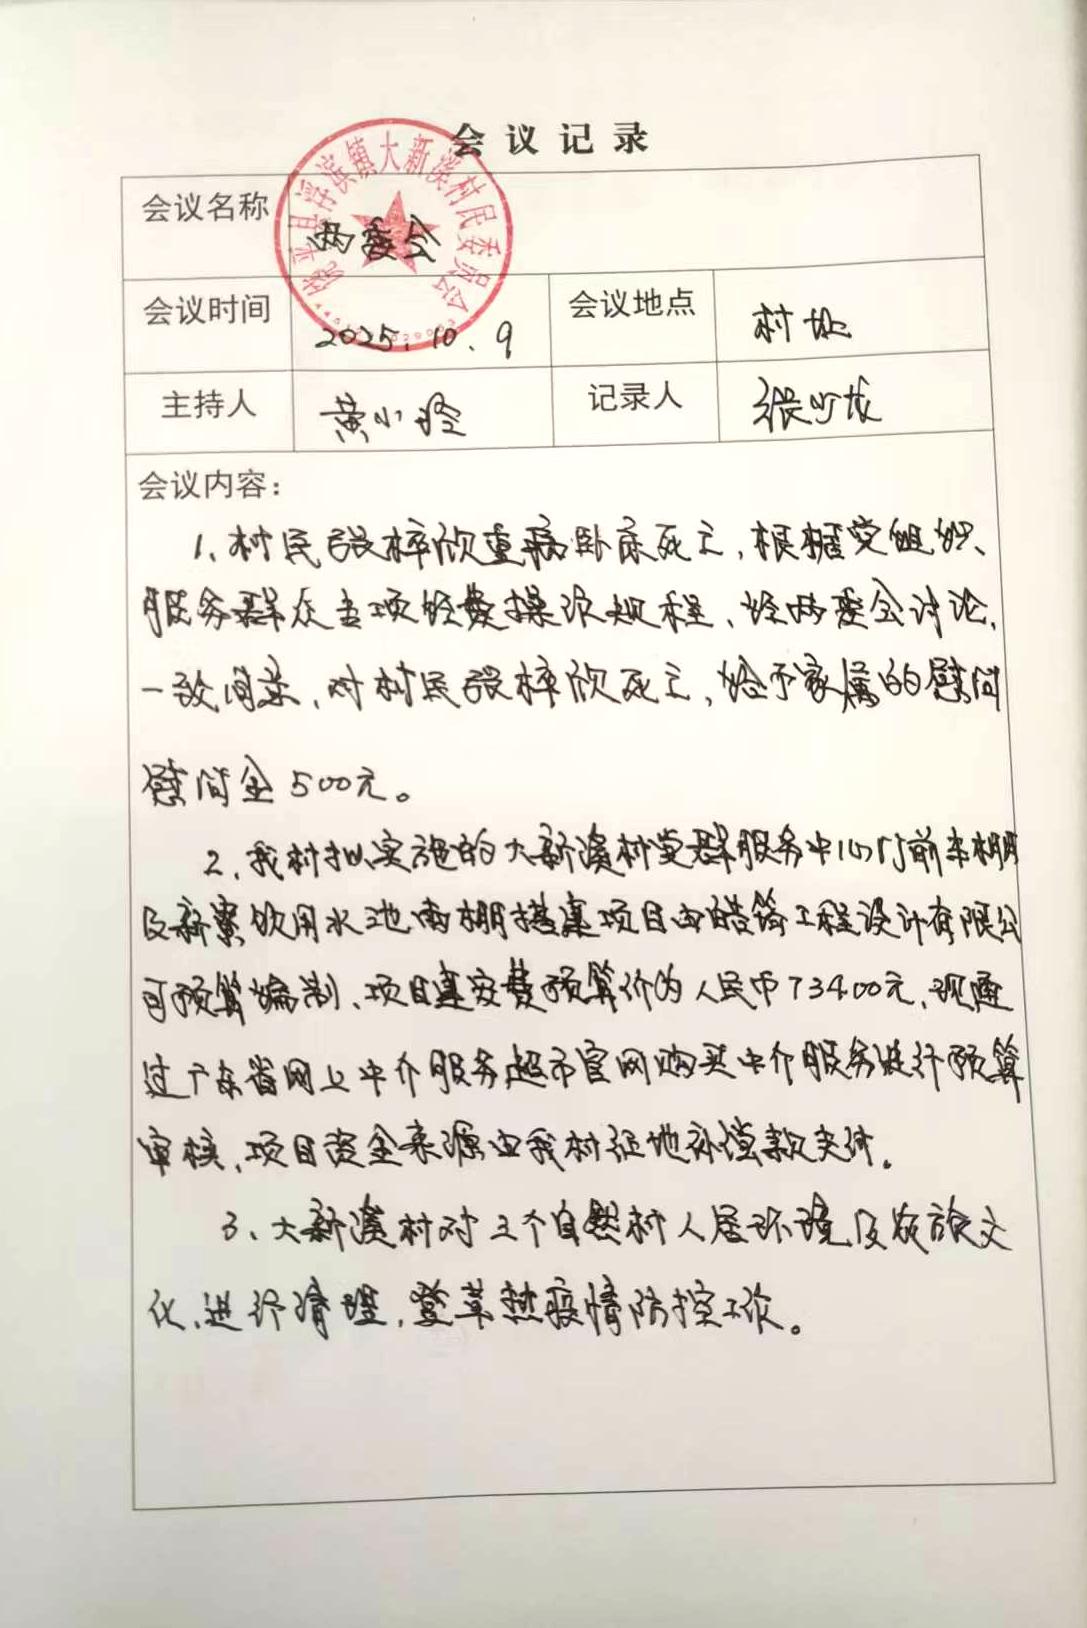 会议记录
饶平县浮滨镇大新溪村民委员会
会议名称 两委会
会议时间 2025.10.9 会议地点 村址
主持人 黄小玲 记录人 张少龙
会议内容:
1、村民张梓欣重病卧床死亡,根据党组织、
服务群众专项经费操作规程、经两委会讨论,
一致同意,对村民张梓欣死亡,给予家属的慰问
慰问金500元。
2、我村拟实施的大新溪村党群服务中心门前车棚
及新寨饮用水池雨棚搭建项目由皓筑工程设计有限公
司预算编制、项目建安费预算价为人民币73400元,现通
过广东省网上中介服务超市官网购买中介服务进行预算
审核,项目资金来源由我村征地补偿款支付。
3、大新溪村对三个自然村人居环境及农族文
化、进行清理,登革热疫情防控工作。